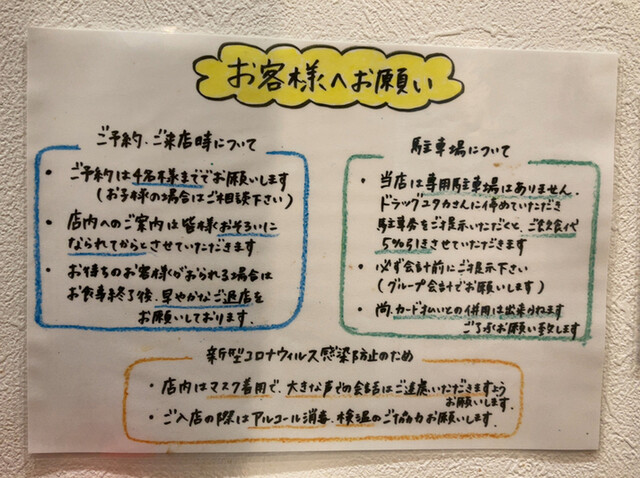 お客様へお願い
ご予約・ご来店時について
・ご予約は4名様まででお願いします
(お子様の場合はご相談下さい)
・店内へのご案内は皆様おそろいに
なられてからとさせていただきます
・お待ちのお客様がおられる場合は
お食事終了後、早やかなご退店を
お願いしております。
駐車場について
・当店は専用駐車場はありません。
ドラッグユタカさんに停めていただき
駐車券をご提示いただくと、ご飲食代
5%引きさせていただきます
・必ず会計前にご提示下さい
(グループ会計でお願いします)
・尚、カード払いとの併用は出来かねます
ご了承お願い致します
新型コロナウィルス感染防止のため
・店内はマスク着用で、大きな声での会話はご遠慮いただきますよう
お願いします。
・ご入店の際はアルコール消毒、検温のご協力お願いします。